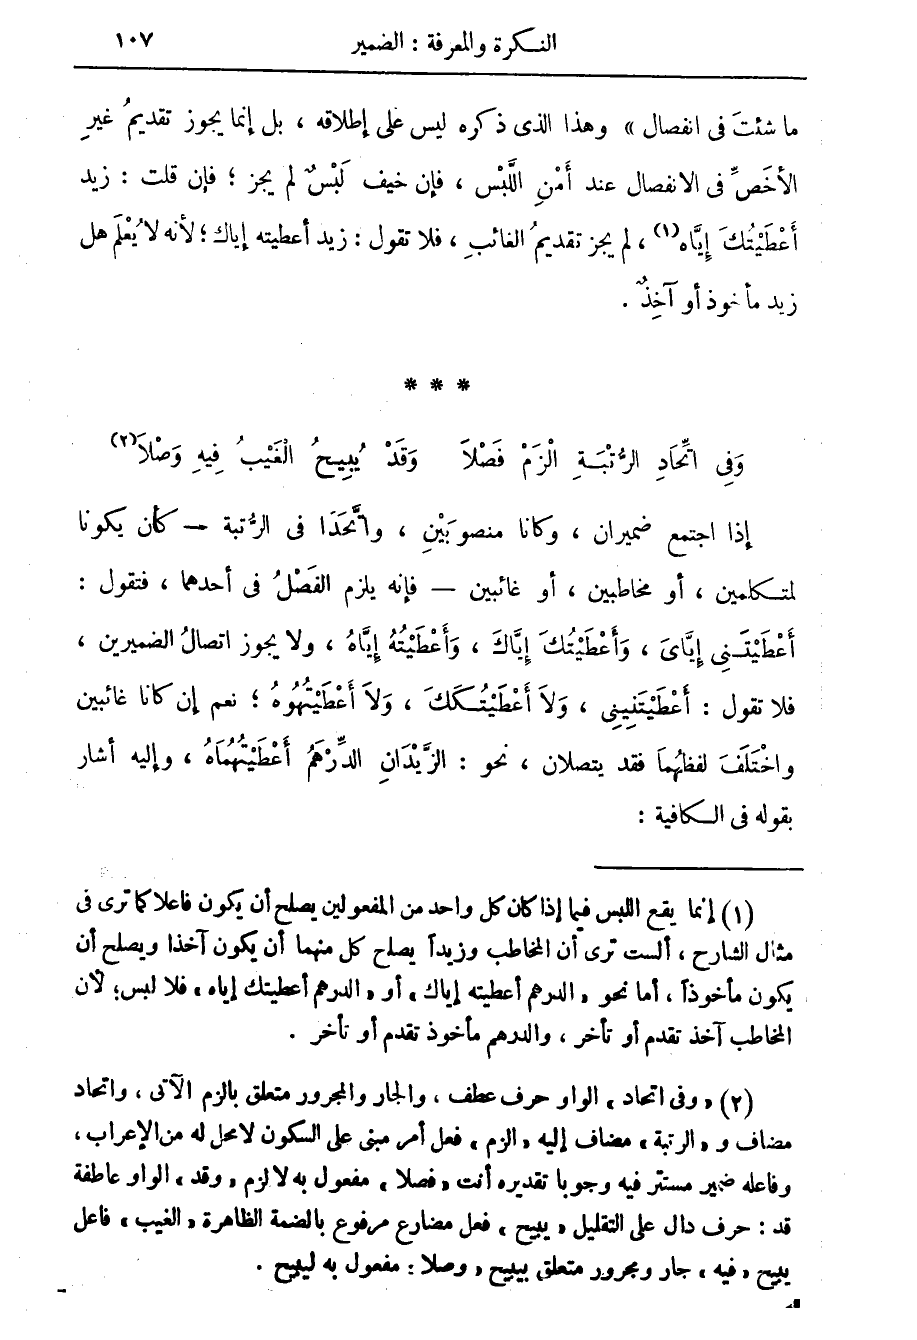 النكرة والمعرفة : الضمير ١٠٧
ما شئتَ فى انفصال » وهذا الذى ذكره ليس على إطلاقه ، بل إنما يجوز تقديمُ غيرِ
الأخَصِّ فى الانفصال عند أَمْنِ اللَّبْس ، فإن خيف لَبْسٌ لم يجز ؛ فإن قلت : زيد
أَعْطَيْتُكَ إِيَّاه(١) ، لم يجز تقديمُ الغائبِ ، فلا تقول : زيد أعطيته إياك ؛ لأنه لا يُعْلَم هل
زيد مأخوذ أو آخِذٌ .
* * *
وَفِى اتِّحَادِ الرُّتْبَةِ الْزَمْ فَصْلاَ وَقَدْ يُبِيحُ الْغَيْبُ فِيهِ وَصْلاَ(٢)
إذا اجتمع ضميران ، وكانا منصوبَيْنِ ، واتَّحَدَا فى الرُّتبة — كأن يكونا
لمتكلمين ، أو مخاطبين ، أو غائبين — فإنه يلزم الفَصْلُ فى أحدهما ، فتقول :
أَعْطَيْتَنِى إِيَّاىَ ، وَأَعْطَيْتُكَ إِيَّاكَ ، وَأَعْطَيْتُهُ إِيَّاهُ ، ولا يجوز اتصالُ الضميرين ،
فلا تقول : أَعْطَيْتَنِينِى ، وَلاَ أَعْطَيْتُكَكَ ، وَلاَ أَعْطَيْتُهُوهُ ؛ نعم إن كانا غائبين
واخْتَلَفَ لفظهُمَا فقد يتصلان ، نحو : الزَّيْدَانِ الدِّرْهَمُ أَعْطَيْتُهُمَاهُ ، وإليه أشار
بقوله فى الكافية :
(١) إنما يقع اللبس فيما إذا كان كل واحد من المفعولين يصلح أن يكون فاعلا كما ترى فى
مثال الشارح ، ألست ترى أن المخاطب وزيداً يصلح كل منهما أن يكون آخذا ويصلح أن
يكون مأخوذاً ، أما نحو « الدرهم أعطيته إياك » أو « الدرهم أعطيتك إياه » فلا لبس؛ لأن
المخاطب آخذ تقدم أو تأخر ، والدرهم مأخوذ تقدم أو تأخر .
(٢) « وفى اتحاد » الواو حرف عطف ، والجار والمجرور متعلق بالزم الآتى ، واتحاد
مضاف و « الرتبة » مضاف إليه « الزم » فعل أمر مبنى على السكون لا محل له من الإعراب ،
وفاعله ضمير مستتر فيه وجوبا تقديره أنت « فصلا » مفعول به لالزم « وقد » الواو عاطفة
قد : حرف دال على التقليل « يبيح » فعل مضارع مرفوع بالضمة الظاهرة « الغيب » فاعل
يبيح « فيه » جار ومجرور متعلق بيبيح « وصلا : مفعول به ليبيح .